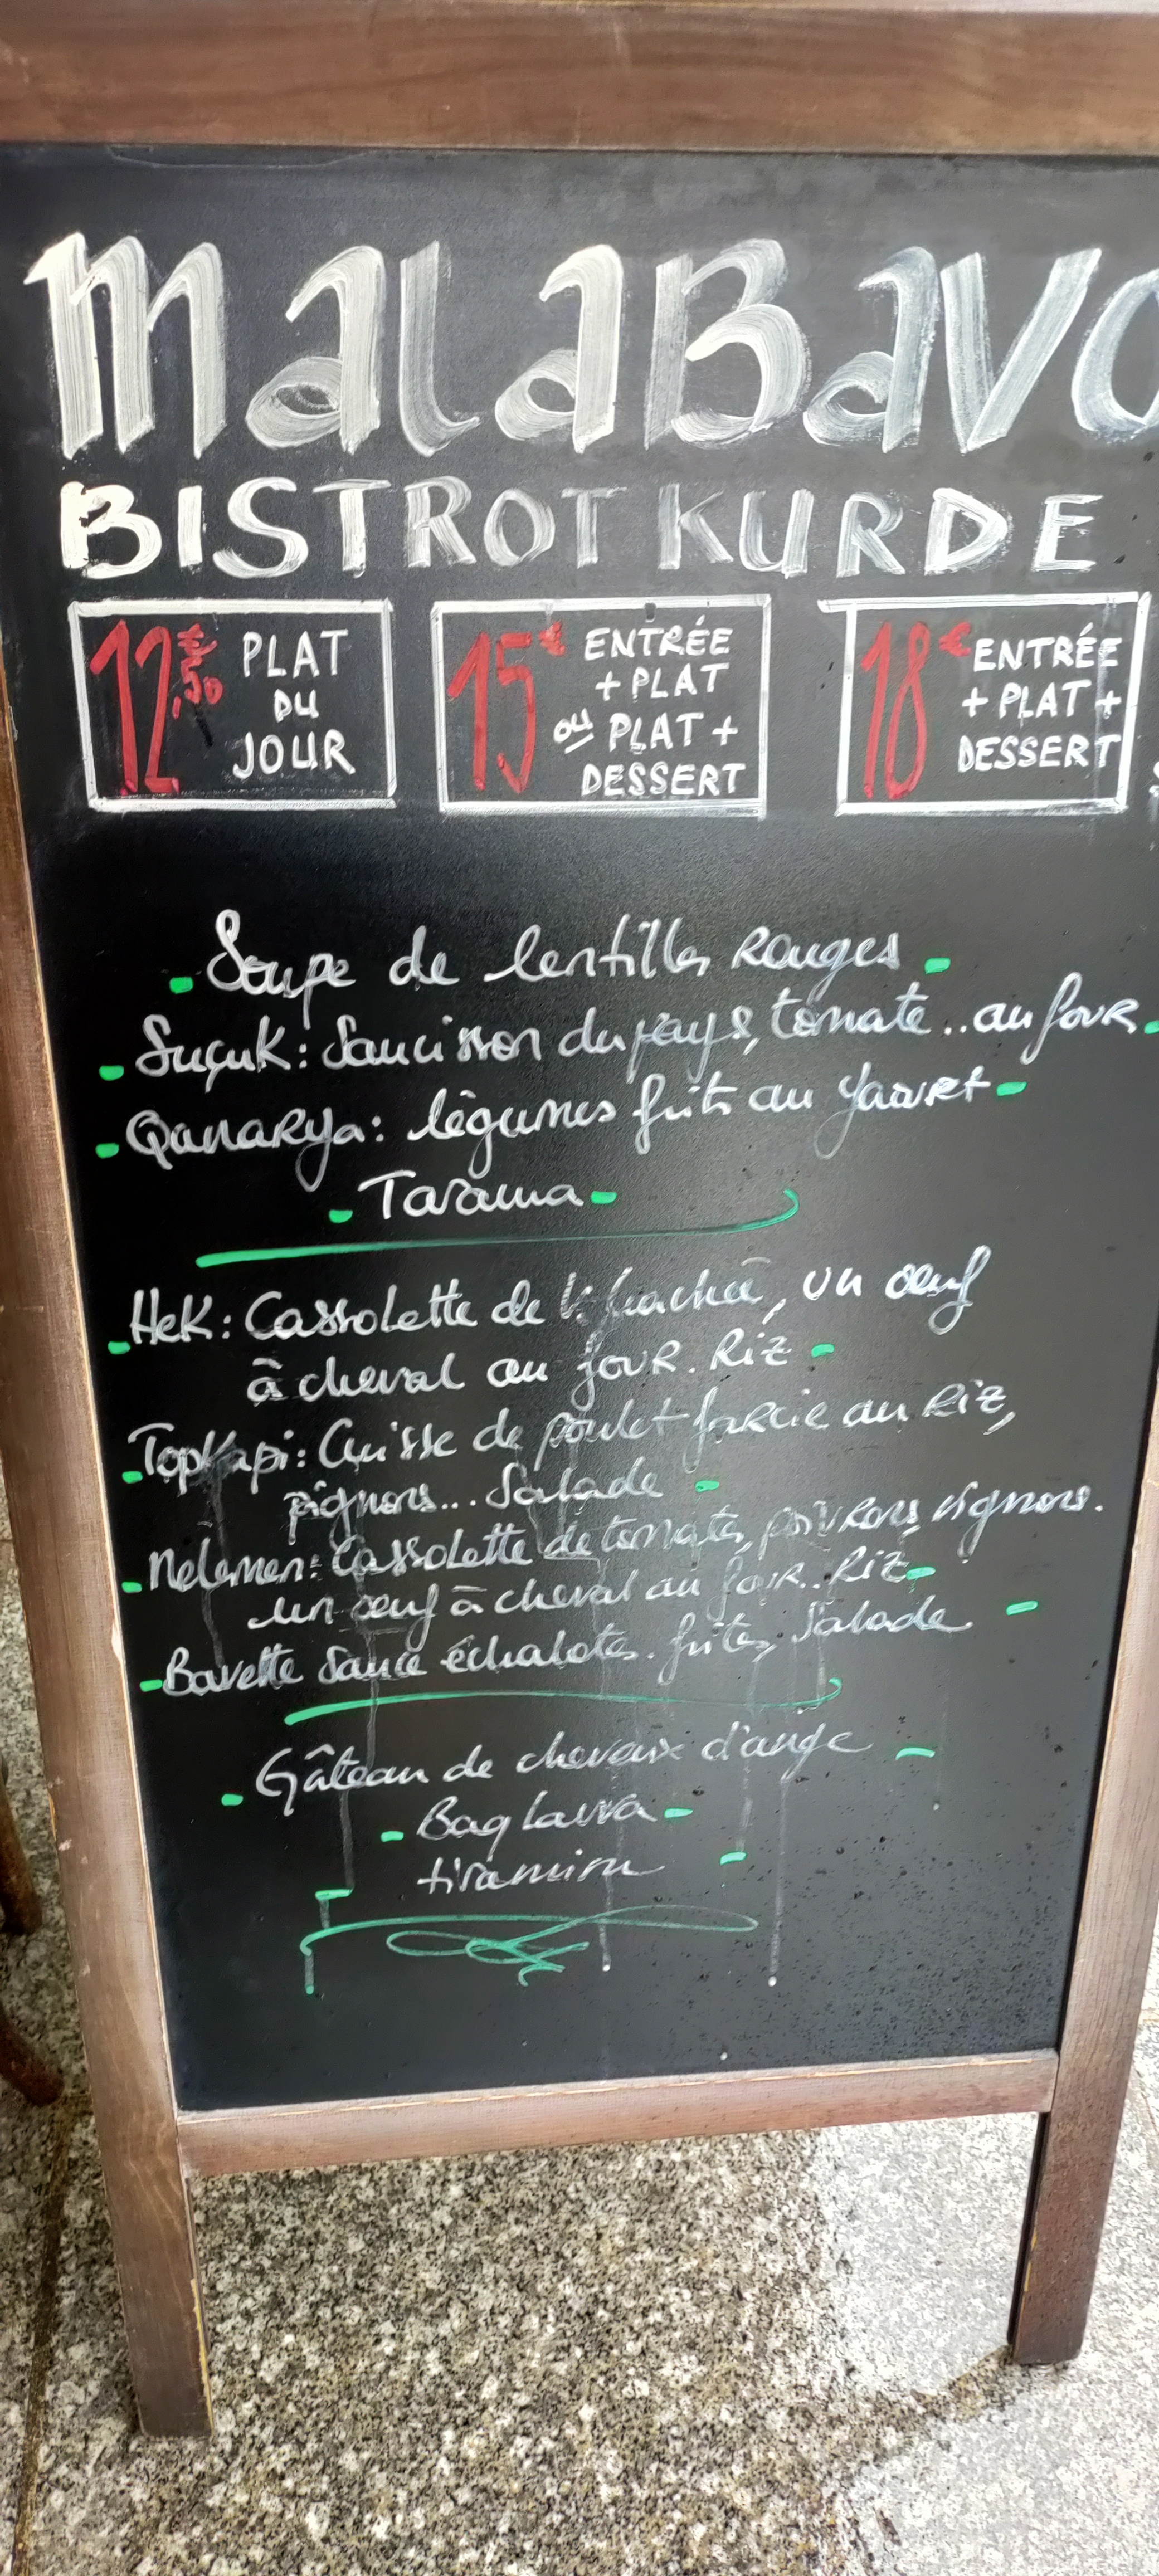 MalaBavo
BISTROT KURDE
12€,50 PLAT DU JOUR
15€ ENTRÉE + PLAT ou PLAT + DESSERT
18€ ENTRÉE + PLAT + DESSERT
Soupe de lentilles Rouges
Suçuk: Saucisson du pays, tomate.. au four
Qanarya: légumes frits au yaourt
Tarama
Hek: Cassolette de V. hachée, un oeuf
à cheval au four. Riz
Topkapi: Cuisse de poulet farcie au Riz,
pignons... Salade
Melemen: Cassolette de tomates, poivrons,
un oeuf à cheval au four.. Riz
Bavette Sauce échalotes. frites, Salade
Gâteau de cheveux d'ange
Baqlawa
tiramisu